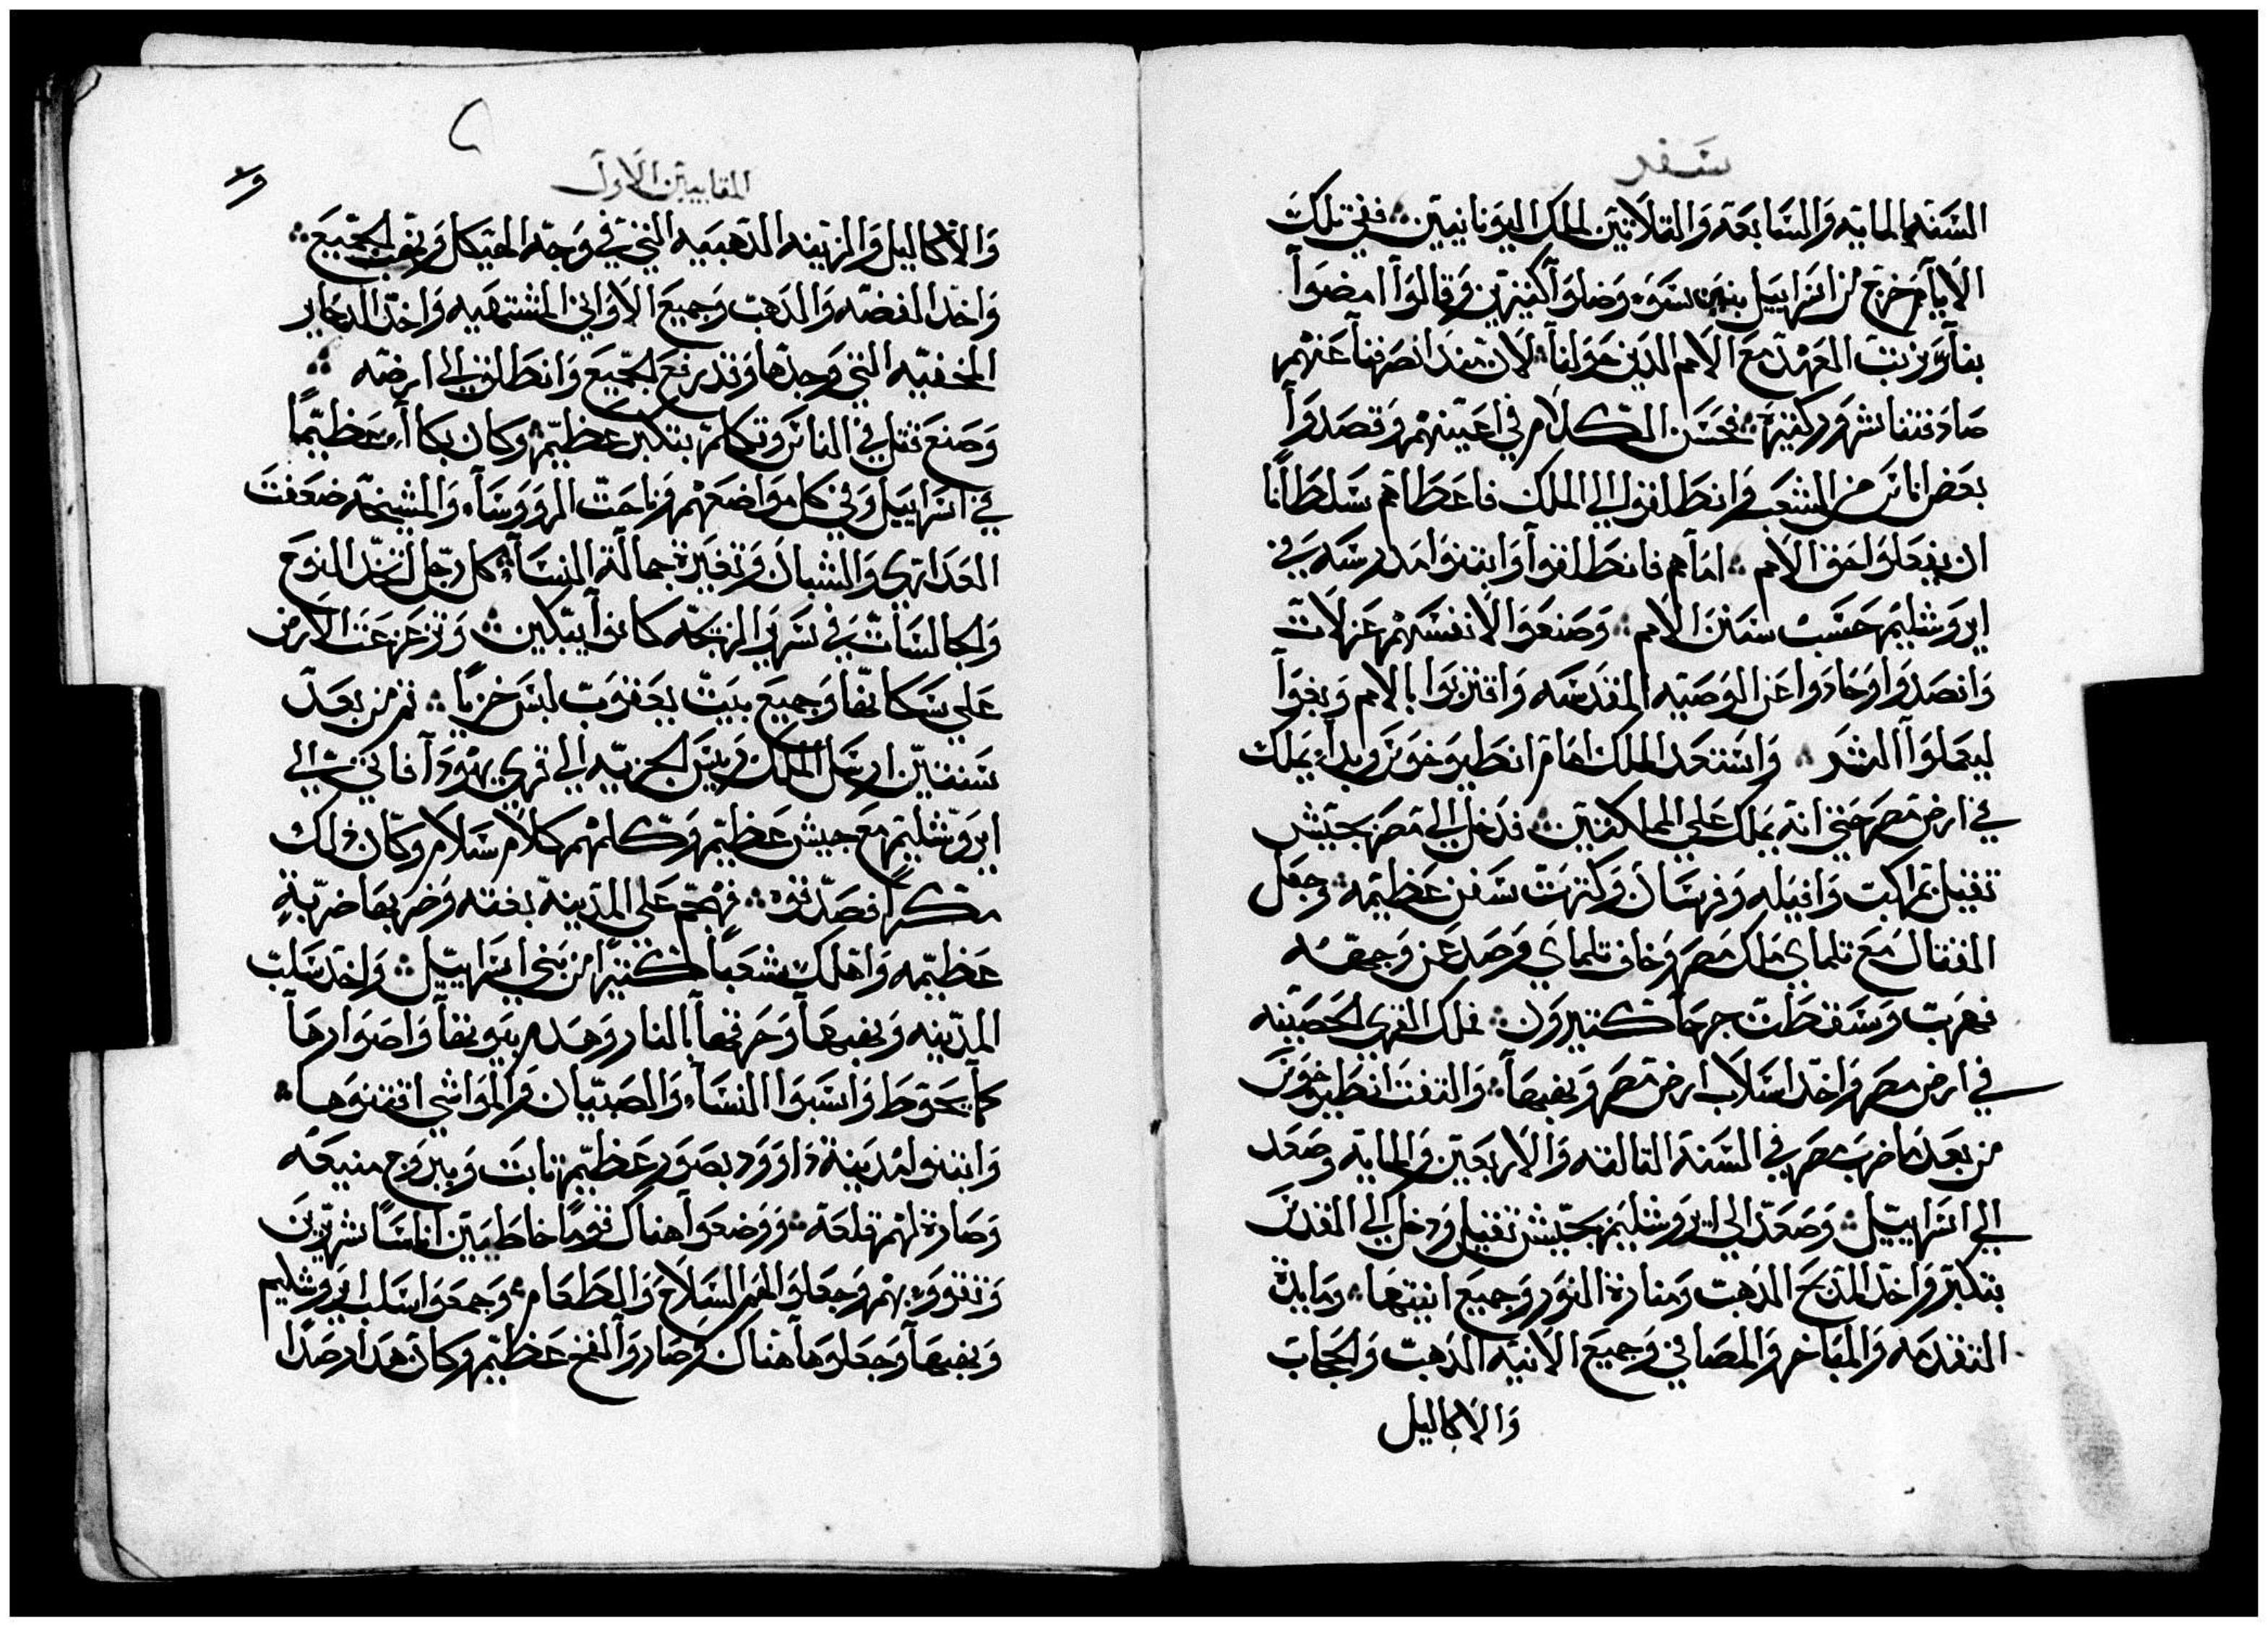 سفر
السنه المايه والسابعه والتلاتين لملك اليونانيين ففي تلك
الايام خرج من اسراييل بنين سوء وضلوا كتيرين وقالوا امضوا
بنا ونرتب العهد مع الامم الدين حولنا لان منذ انصرفنا عنهم
صادفتنا شرور كتيره فحسن الكلام في اعينهم وقصدوا
بعض اناس من الشعب وانطلقوا الي الملك فاعطاهم سلطانا
ان يفعلوا حق الامم اما هم فانطلقوا وابتنوا مدرسه في
ايروشليم حسب سنن الامم وصنعوا لانفسهم غرلات
وانصدوا وحادوا عن الوصيه المقدسه واقتربوا بالامم وبغوا
ليعملوا الشر واستعد الملك امام انطيوخوس وبدا يملك
في ارض مصر حتي انه يملك علي المملكتين فدخل الي مصر بجيش
تقيل بمراكب وافيله وفرسان وكترت سفن عظيمه وجعل
القتال مع تلماي ملك مصر وخاف تلماي ورصد عن وجهه
فهرب وسقطت جرحا كتيرون فملك القري الحصينه
في ارض مصر واخد اسلاب ارض مصر ونهبها والتفت انطيوخوس
من بعد ما ضرب مصر في السنة التالته والاربعين والمايه وصعد
الي اسراييل وصعد الي ايروشليم بجيش تقيل ودخل الي القدس
بتكبر واخد المدبح الدهب ومنارة النور وجميع انيتها ومايدة
التقدمه والمباخر والمصافي وجميع الانيه الدهب والحجاب
والاكاليل
المقابيين الاول
والاكاليل والزينه الدهبيه التي في وجه الهيكل ونهب الجميع
واخد الفضه والدهب وجميع الاواني المشتهيه واخد الدخاير
المخفيه التي وجدها وتد رفع الجميع وانطلق الي ارضه
وصنع قتل في الناس وتكلم بتكبر عظيم وكان بكاء عظيما
في اسراييل وفي كل مواضعهم وناحت الرووساء والمشيخه ضعفت
العداري والشبان وتغيرة جمالة النساء كل رجل اتخد النوح
والجالسات في سرير الزيجه كانوا يبكين وتزعزعت الارض
علي سكانها وجميع بيت يعقوب لبس خزيا تم من بعد
سنتين ارسل الملك رييس الجزيه الي قري يهودا فاتي الي
ايروشليم مع جيش عظيم وكلمهم كلام سلام وكان دلك
مكرا فصدقوه فهجم علي المدينه بغته وضربها ضربة
عظيمه واهلك شعبا كتيرا من بني اسراييل واخد سلب
المدينه ونهبها وحرقها بالنار وهدم بيوتها واصوارها
كما يحوط وانسبوا النساء والصبيان والمواشي اقتنوها
وابتنوا مدينة داوود بصور عظيم تابت وببروج منيعه
وصارة لهم قلعة ووضعوا هناك قوما خاطيين اناسا شريرين
وتقووه بهم وجعلوا لهم السلاح والطعام وجمعوا سلب ايروشليم
ونهبها وجعلوها هناك وصاروا لفخ عظيم وكان هدا رصدا